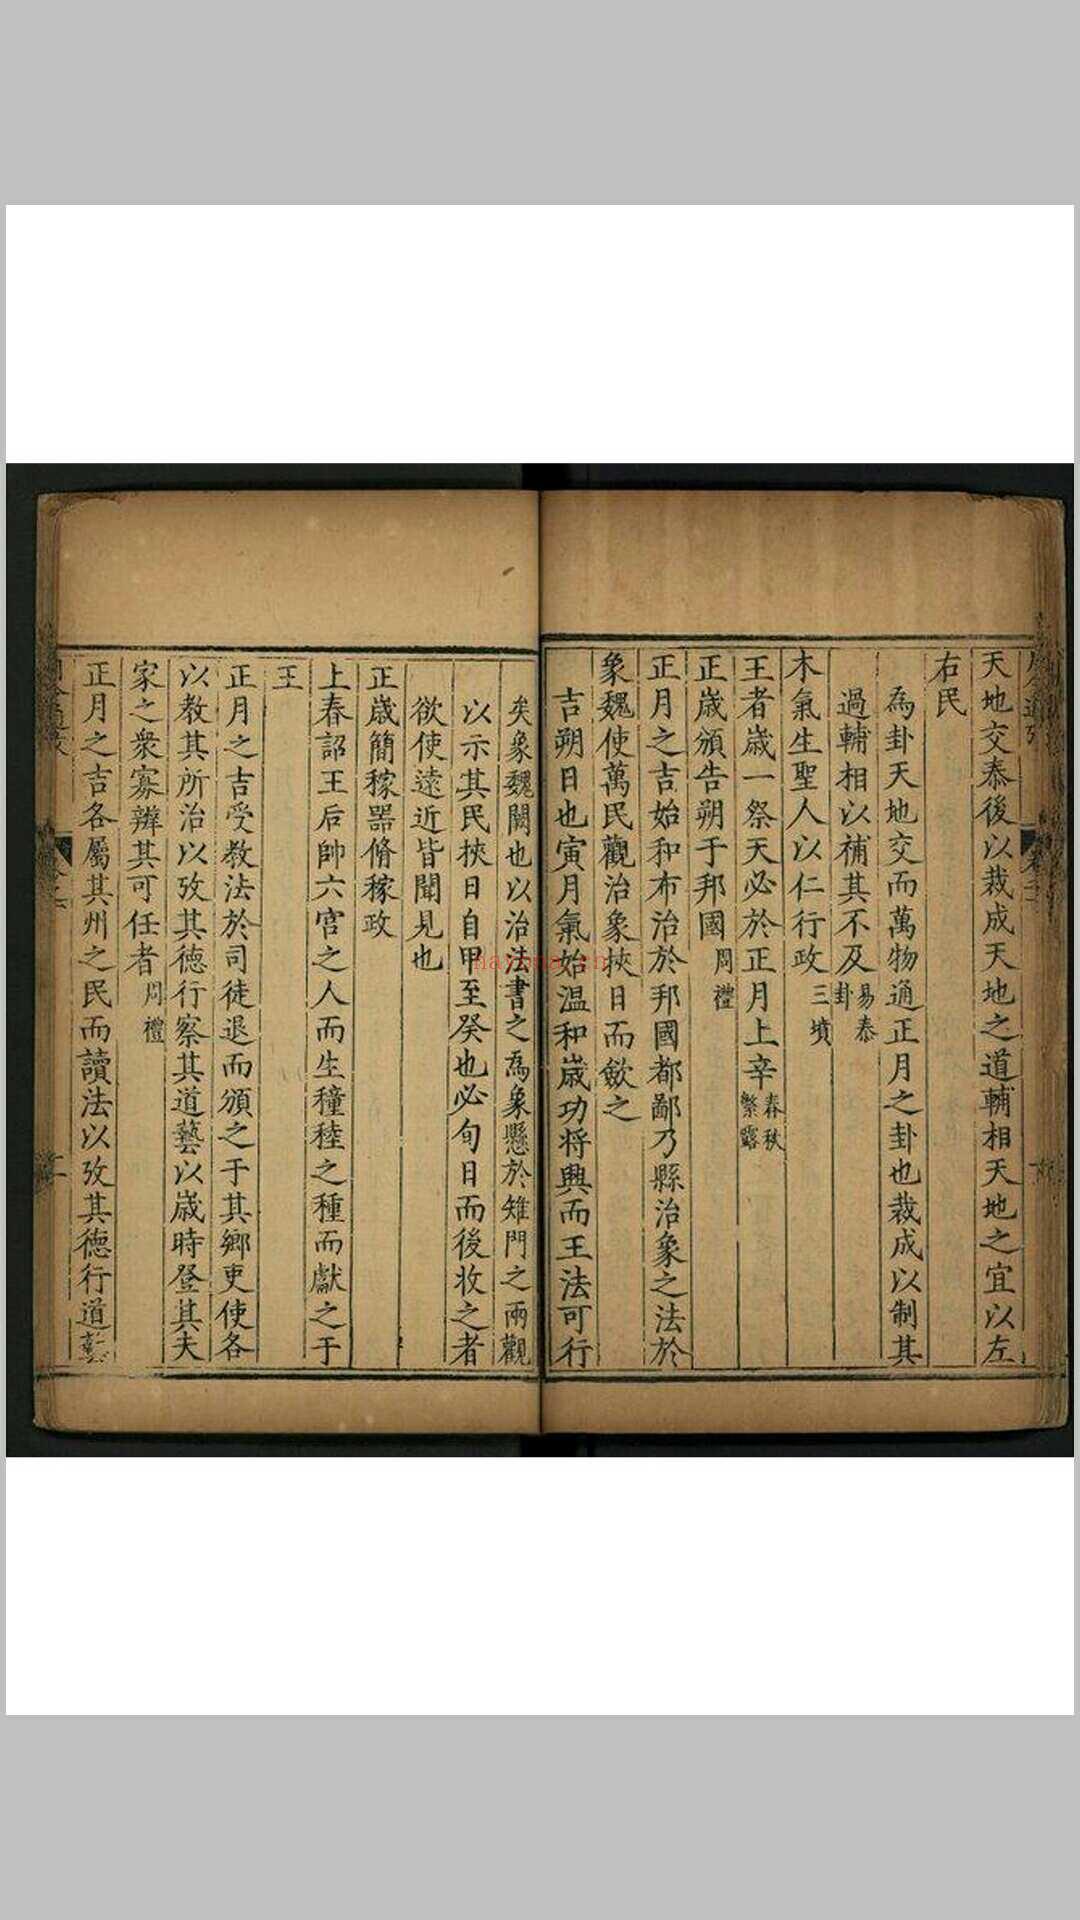 天地交泰後以裁成天地之道輔相天地之宜以左
右民
為卦天地交而萬物通正月之卦也裁成以制其
過輔相以補其不及易泰卦
木氣生聖人以仁行政三墳
王者歲一祭天必於正月上辛春秋繁露
正歲頒告朔于邦國周禮
正月之吉始和布治於邦國都鄙乃縣治象之法於
象魏使萬民觀治象挾日而斂之
吉朔日也寅月氣始温和歲功将興而王法可行
矣象魏闕也以治法書之為象懸於雉門之兩觀
以示其民挾日自甲至癸也必旬日而後收之者
欲使遠近皆聞見也
正歲簡稼器脩稼政
上春詔王后帥六宮之人而生穜稑之種而獻之于
王
正月之吉受教法於司徒退而頒之于其鄉吏使各
以教其所治以攷其德行察其道藝以歲時登其夫
家之衆寡辨其可任者周禮
正月之吉各屬其州之民而讀法以攷其德行道藝
nayona.cn